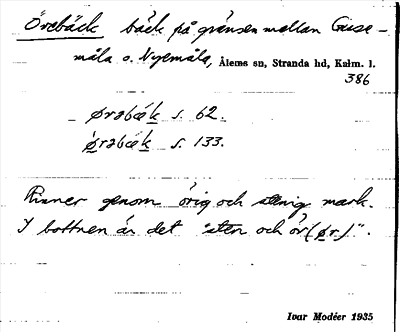 Örebäck bäck på gränsen mellan Gisse-
måla o. Nyemåla, Ålems sn, Stranda hd, Kalm. l.
386
ørəbæk s. 62.
ørəbæk s. 133.
Rinner genom örig och stenig mark.
I bottnen är det "sten och ör (ør)".
Ivar Modéer 1935